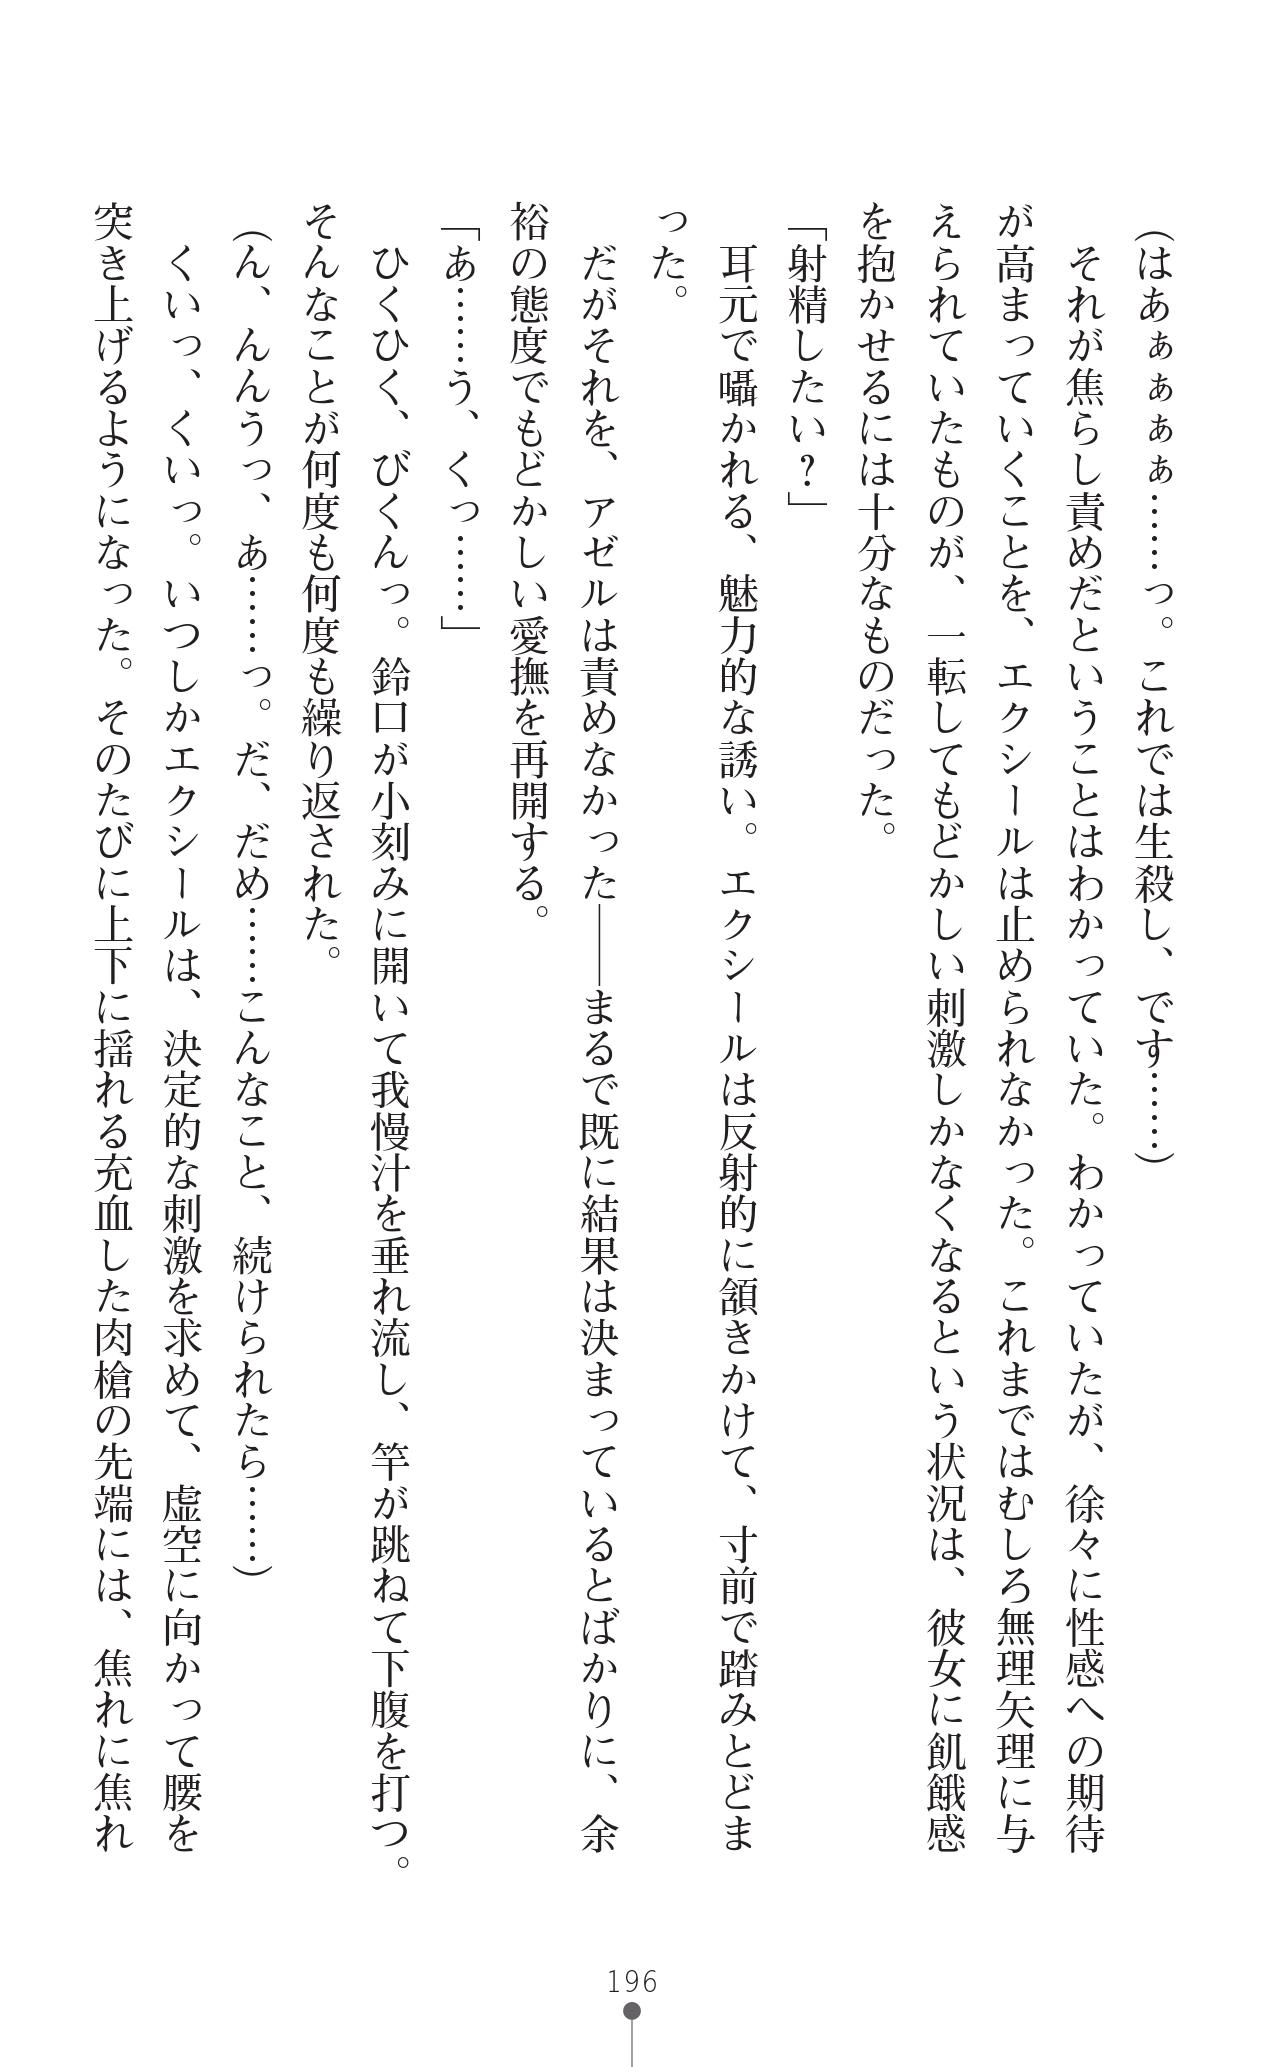 (はあぁぁぁぁ……っ。これでは生殺し、です……)
　それが焦らし責めだということはわかっていた。わかっていたが、徐々に性感への期待
が高まっていくことを、エクシールは止められなかった。これまではむしろ無理矢理に与
えられていたものが、一転してもどかしい刺激しかなくなるという状況は、彼女に飢餓感
を抱かせるには十分なものだった。
「射精したい?」
　耳元で囁かれる、魅力的な誘い。エクシールは反射的に頷きかけて、寸前で踏みとどま
った。
　だがそれを、アゼルは責めなかった――まるで既に結果は決まっているとばかりに、余
裕の態度でもどかしい愛撫を再開する。
「あ……う、くっ……」
　ひくひく、びくんっ。鈴口が小刻みに開いて我慢汁を垂れ流し、竿が跳ねて下腹を打つ。
そんなことが何度も何度も繰り返された。
(ん、んんうっ、あ……っ。だ、だめ……こんなこと、続けられたら……)
　くいっ、くいっ。いつしかエクシールは、決定的な刺激を求めて、虚空に向かって腰を
突き上げるようになった。そのたびに上下に揺れる充血した肉槍の先端には、焦れに焦れ
196